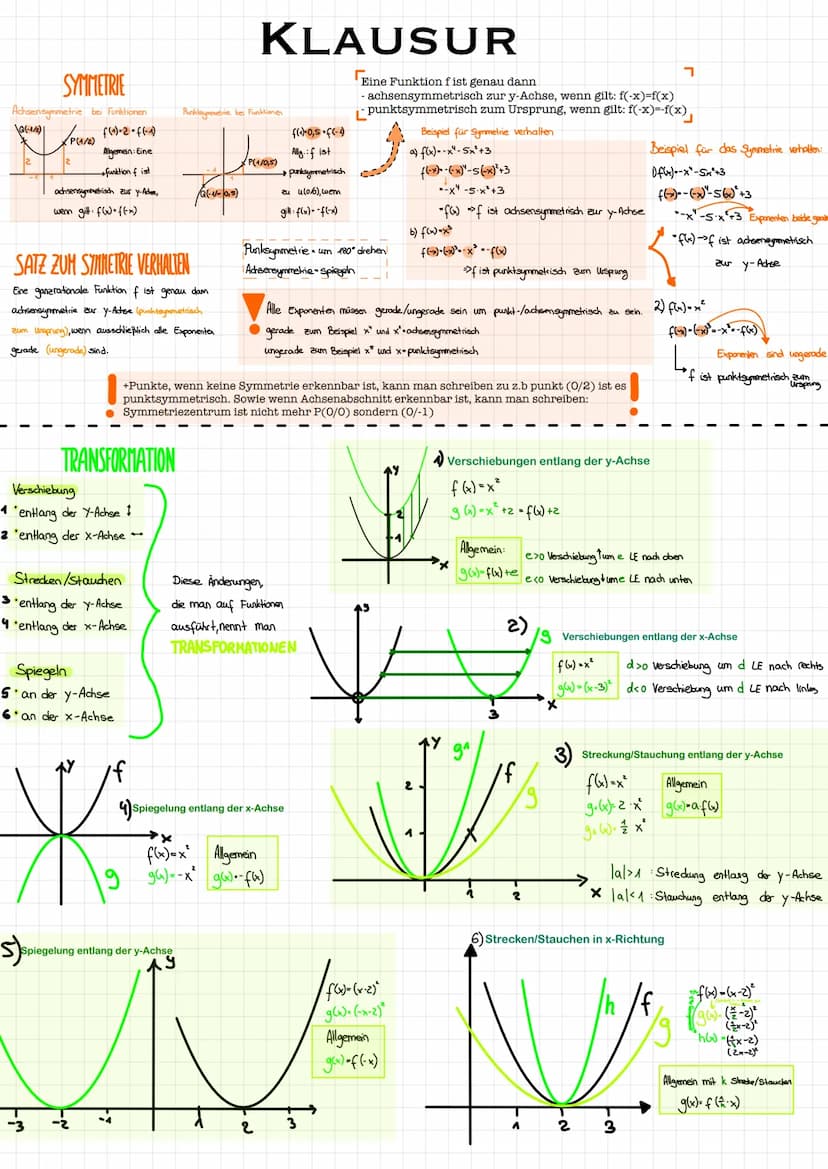 KLAUSUR
SYMMETRIE
Achsensymmetrie bei Funktionen
Q(-1/2)
P(1/2)
2
2
f(1)=2=f(-1)
Allgemein: Eine
Funktion f ist
achsensymmetrisch zur y-Achse,
wenn gilt: f(x)=f(-x)
Punktsymmetrie bei Funktionen
P(1/0,5)
Q(-1/-0,5)
Allg.: f ist
punktsymmetrisch
zu u(0/0), wenn
gilt: f(x)=-f(-x)
Eine Funktion f ist genau dann
- achsensymmetrisch zur y-Achse, wenn gilt: f(-x)=f(x)
- punktsymmetrisch zum Ursprung, wenn gilt: f(-x)=-f(x)
Beispiel für Symmetrie verhalten
a) f(x)=-x⁴-5x²+3
f(-x)=-(-x)⁴-5(-x)²+3
=-x⁴-5·x²+3
=f(x) ⇒f ist achsensymmetrisch zur y-Achse
b) f(x)=x³
f(-x)=(-x)³=-x³=-f(x)
⇒f ist punktsymmetrisch zum Ursprung
Beispiel für das Symmetrie verhalten:
1) f(x)=-x⁴-5x²+3
=-x⁴-5·x²+3 Exponenten beide gerade
=f(x)→f ist achsensymmetrisch
zur y-Achse
2) f(x)=x²
Exponenten sind ungerade
f ist punktsymmetrisch zum
Ursprung
SATZ ZUM SYMMETRIE VERHALTEN
Eine ganzrationale Funktion f ist genau dann
achsensymmetrie zur y-Achse (punktsymmetrisch
zum Ursprung), wenn ausschließlich alle Exponenten
gerade (ungerade) sind.
Punksymmetrie = um 180° drehen
Achsensymmetrie = Spiegeln
Alle Exponenten müssen gerade/ungerade sein um punkt-/achsensymmetrisch zu sein.
gerade zum Beispiel
ungerade zum Beispiel
+Punkte, wenn keine Symmetrie erkennbar ist, kann man schreiben zu z.b punkt (0/2) ist es
punktsymmetrisch. Sowie wenn Achsenabschnitt erkennbar ist, kann man schreiben:
Symmetriezentrum ist nicht mehr P(0/0) sondern (0/-1)
TRANSFORMATION
Verschiebung
1 * entlang der Y-Achse ↕
2 * entlang der x-Achse ↔
Strecken/Stauchen
3 * entlang der y-Achse
4 * entlang der x-Achse
Spiegeln
5 * an der y-Achse
6 * an der x-Achse
Diese Änderungen,
die man auf Funktionen
ausführt, nennt man
TRANSFORMATIONEN
y
2
1
x
1) Verschiebungen entlang der y-Achse
f(x)=x²
g(x)=x²+2=f(x)+2
Allgemein:
g(x)=f(x)+e
e>0 Verschiebung↑um e LE nach oben
e<0 Verschiebung↓um e LE nach unten
g
3
x
2)
Verschiebungen entlang der x-Achse
f(x)=x²
g(x)=(x-3)²
d>0 Verschiebung um d LE nach rechts
d<0 Verschiebung um d LE nach links
y
f
x
g
4) Spiegelung entlang der x-Achse
f(x)=x²
g(x)=-x²
Allgemein
g(x)=-f(x)
y
g1
f
g
2
1
1
2
x
3) Streckung/Stauchung entlang der y-Achse
f(x)=x²
g1(x)=2·x²
g2(x)=½ x²
Allgemein
g(x)=a f(x)
|a|>1 : Streckung entlang der y-Achse
|a|<1 : Stauchung entlang der y-Achse
5) Spiegelung entlang der y-Achse
y
-3 -2 -1 1 2 3
f(x)=(x-2)²
g(x)=(-x-2)²
Allgemein
g(x)=f(-x)
6) Strecken/Stauchen in x-Richtung
h
f
g
1 2 3
f(x)=(x-2)²
(2x-2)²
Allgemein mit k Strecke/Stauchen